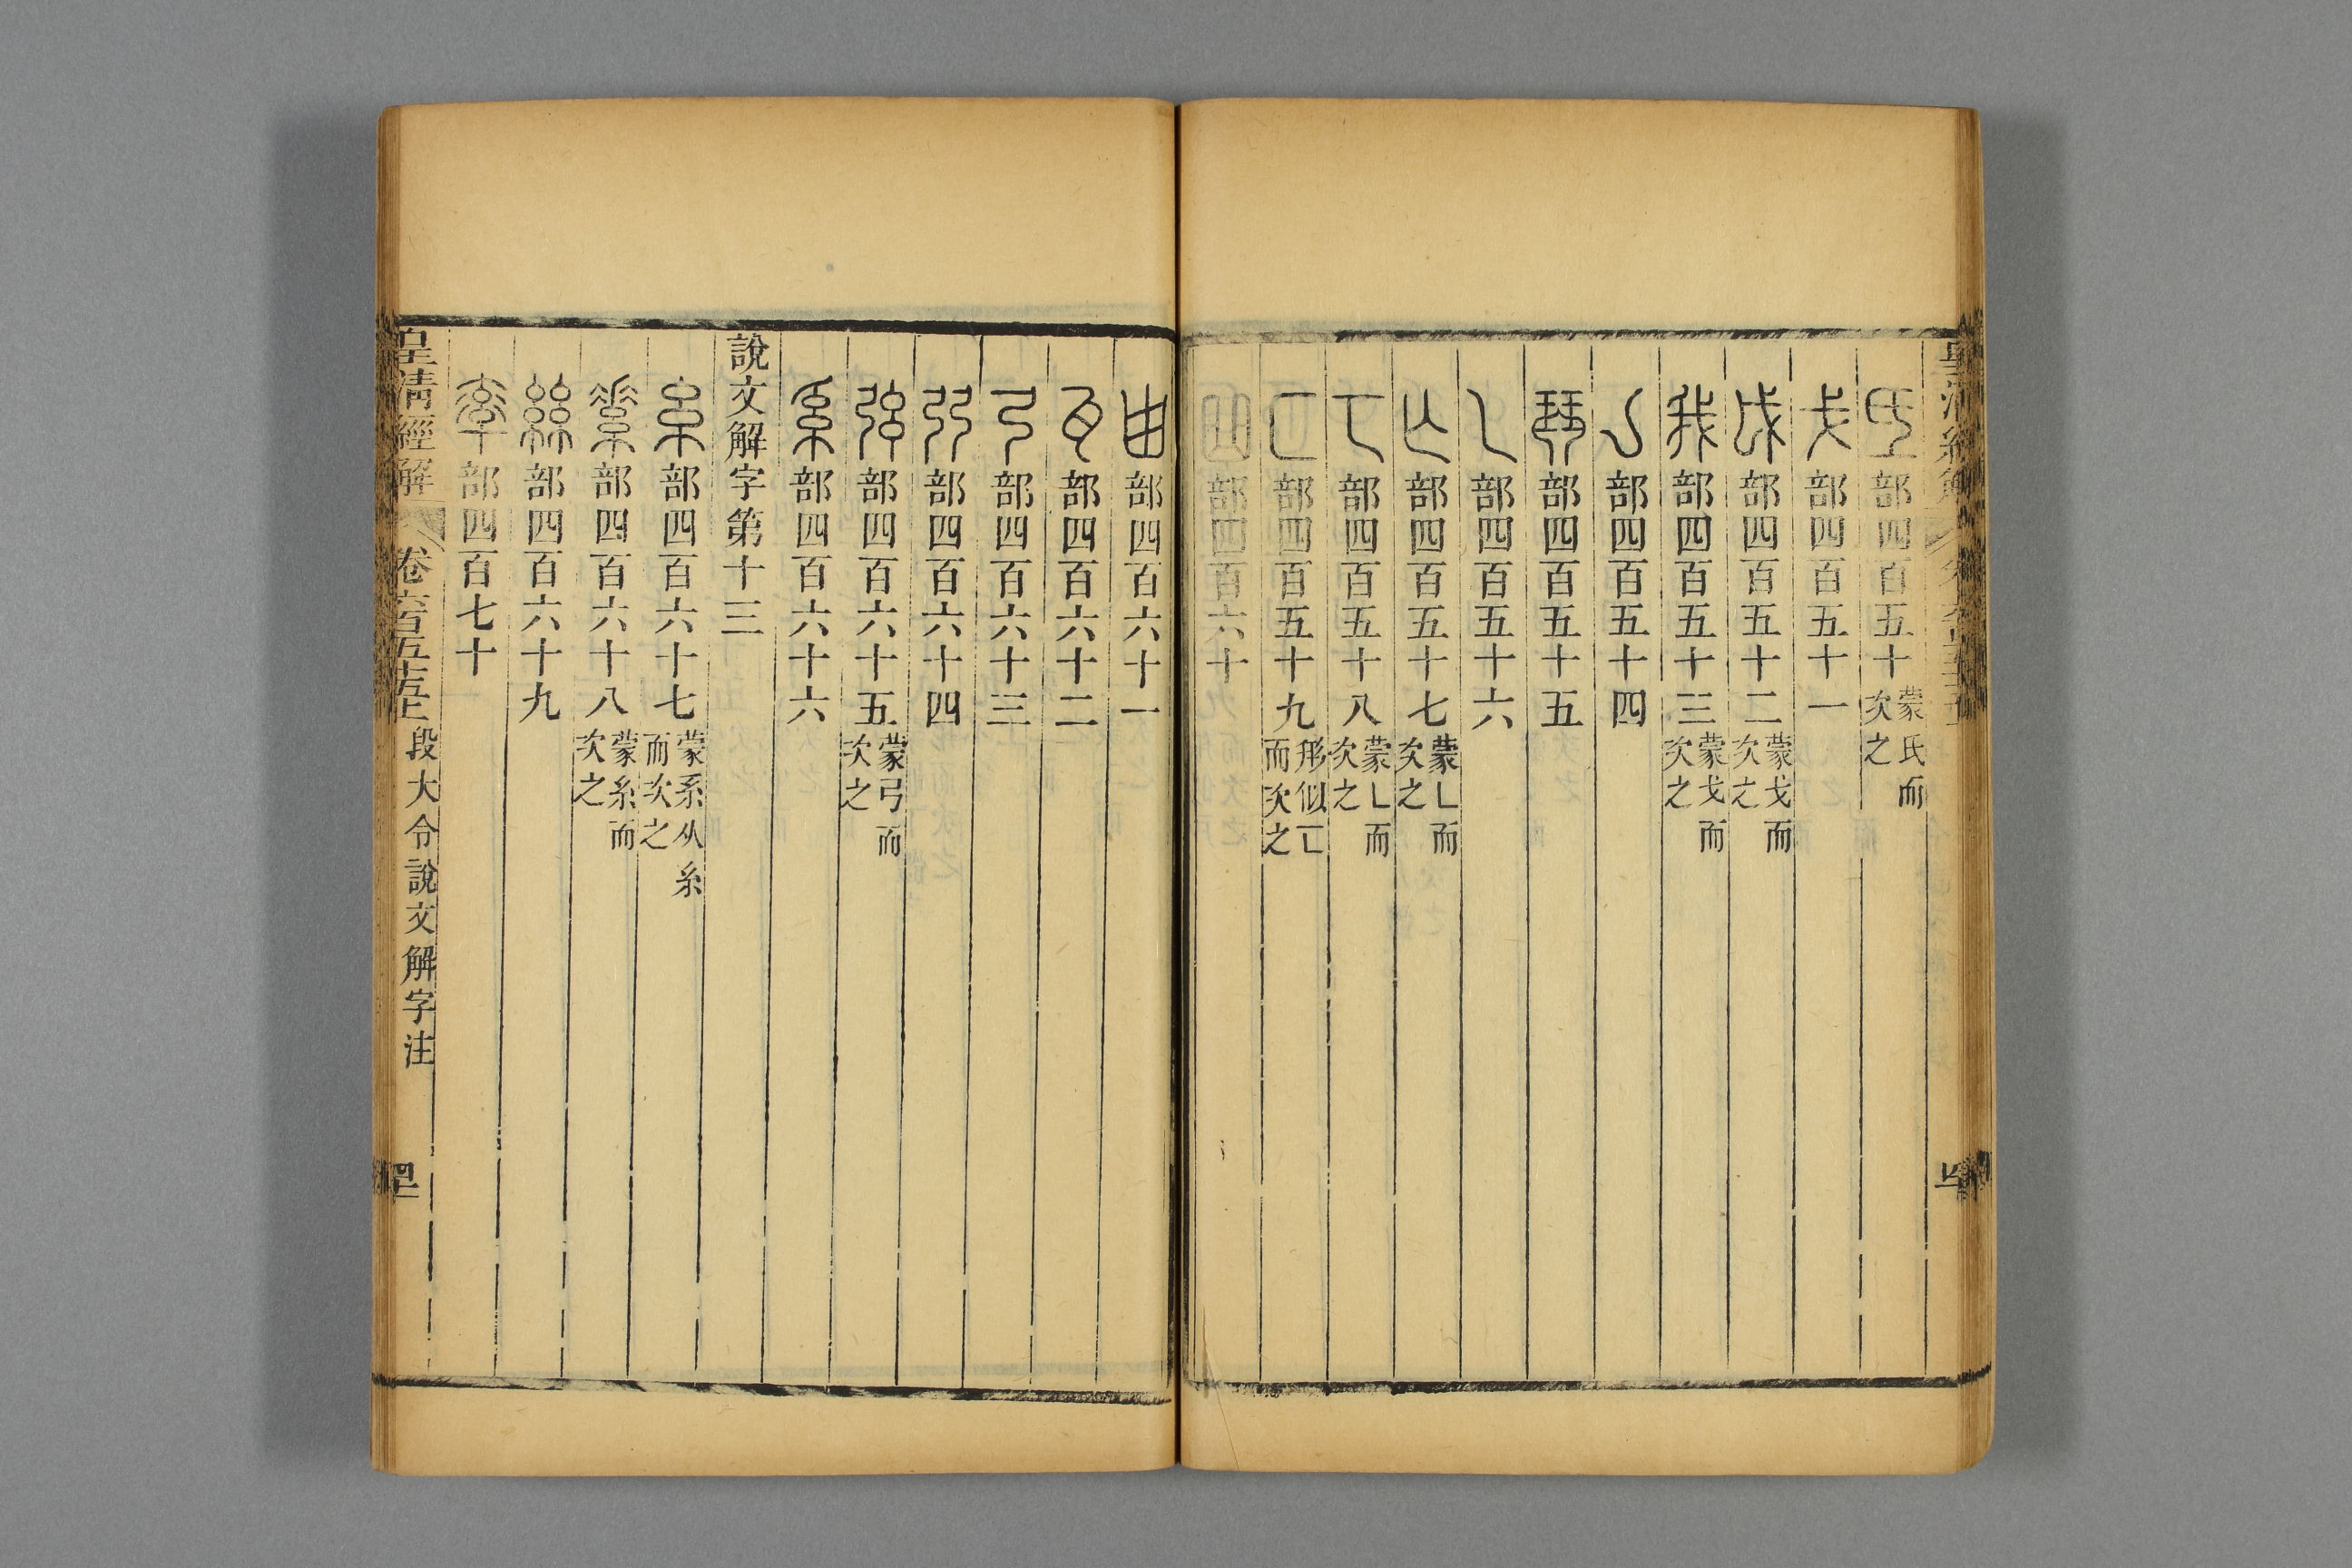 氐部四百五十蒙氏而次之
戈部四百五十一
戉部四百五十二蒙戈而次之
我部四百五十三蒙戈而次之
亅部四百五十四
琴部四百五十五
乚部四百五十六
亾部四百五十七蒙乚而次之
匸部四百五十八蒙乚而次之
匚部四百五十九形似匸而次之
曲部四百六十
甾部四百六十一
瓦部四百六十二
弓部四百六十三
弜部四百六十四
弦部四百六十五蒙弓而次之
系部四百六十六
說文解字第十三
糸部四百六十七蒙系从糸而次之
素部四百六十八蒙糸而次之
絲部四百六十九
率部四百七十
皇清經解 卷六百五十五上 段大令說文解字注